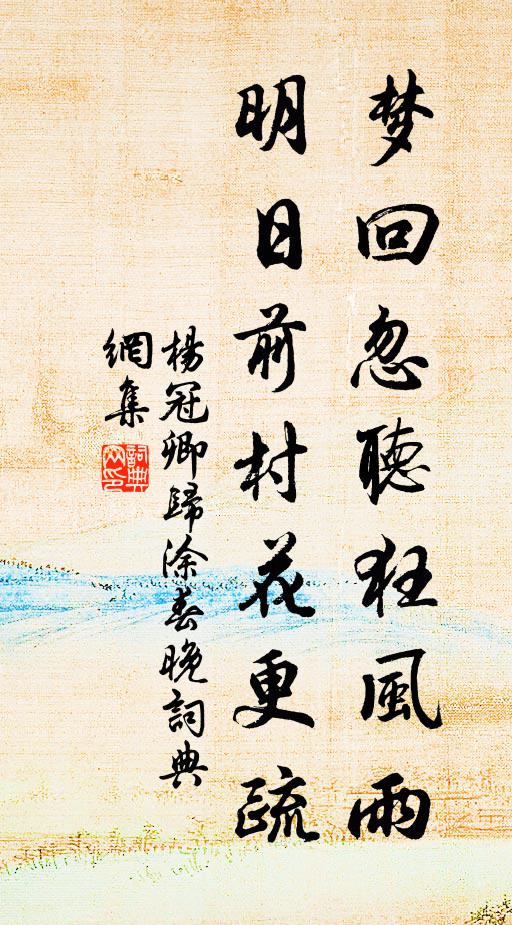 梦回忽聽狂風雨
明日前村花更疏
楊冠卿歸涂春晚詞典
網集
詞典網印